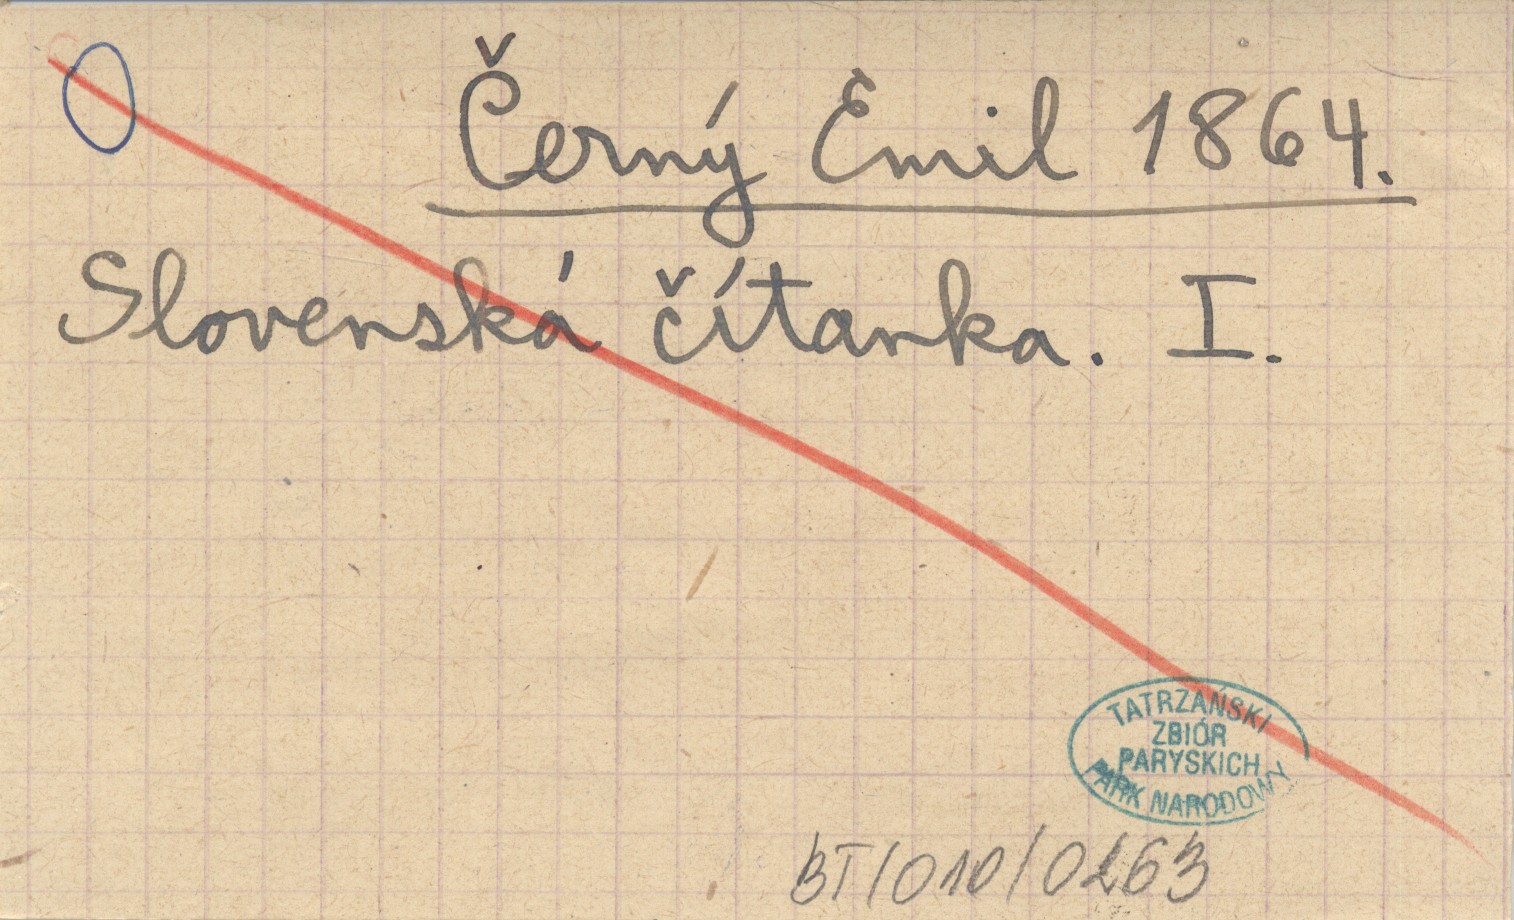 Černý Emil 1864.
Slovenská čítanka. I.
TATRZAŃSKI
ZBIÓR
PARYSKICH
PARK NARODOWY
BT/010/0263